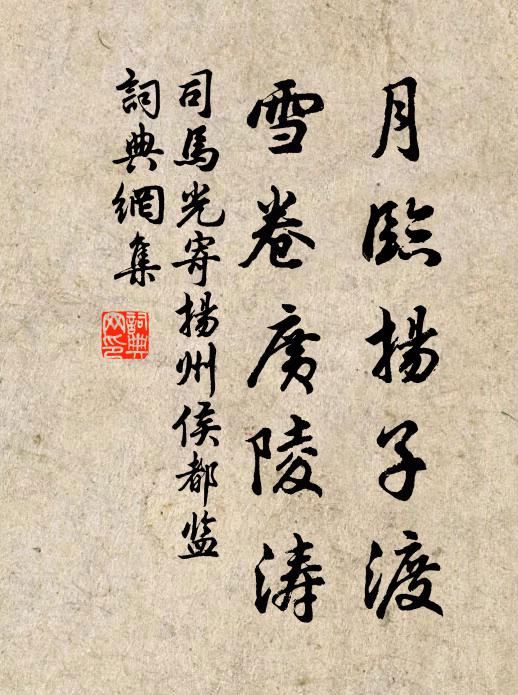 月臨揚子渡
雪卷廣陵涛
司馬光寄揚州侯都监
詞典網集
詞典
网印